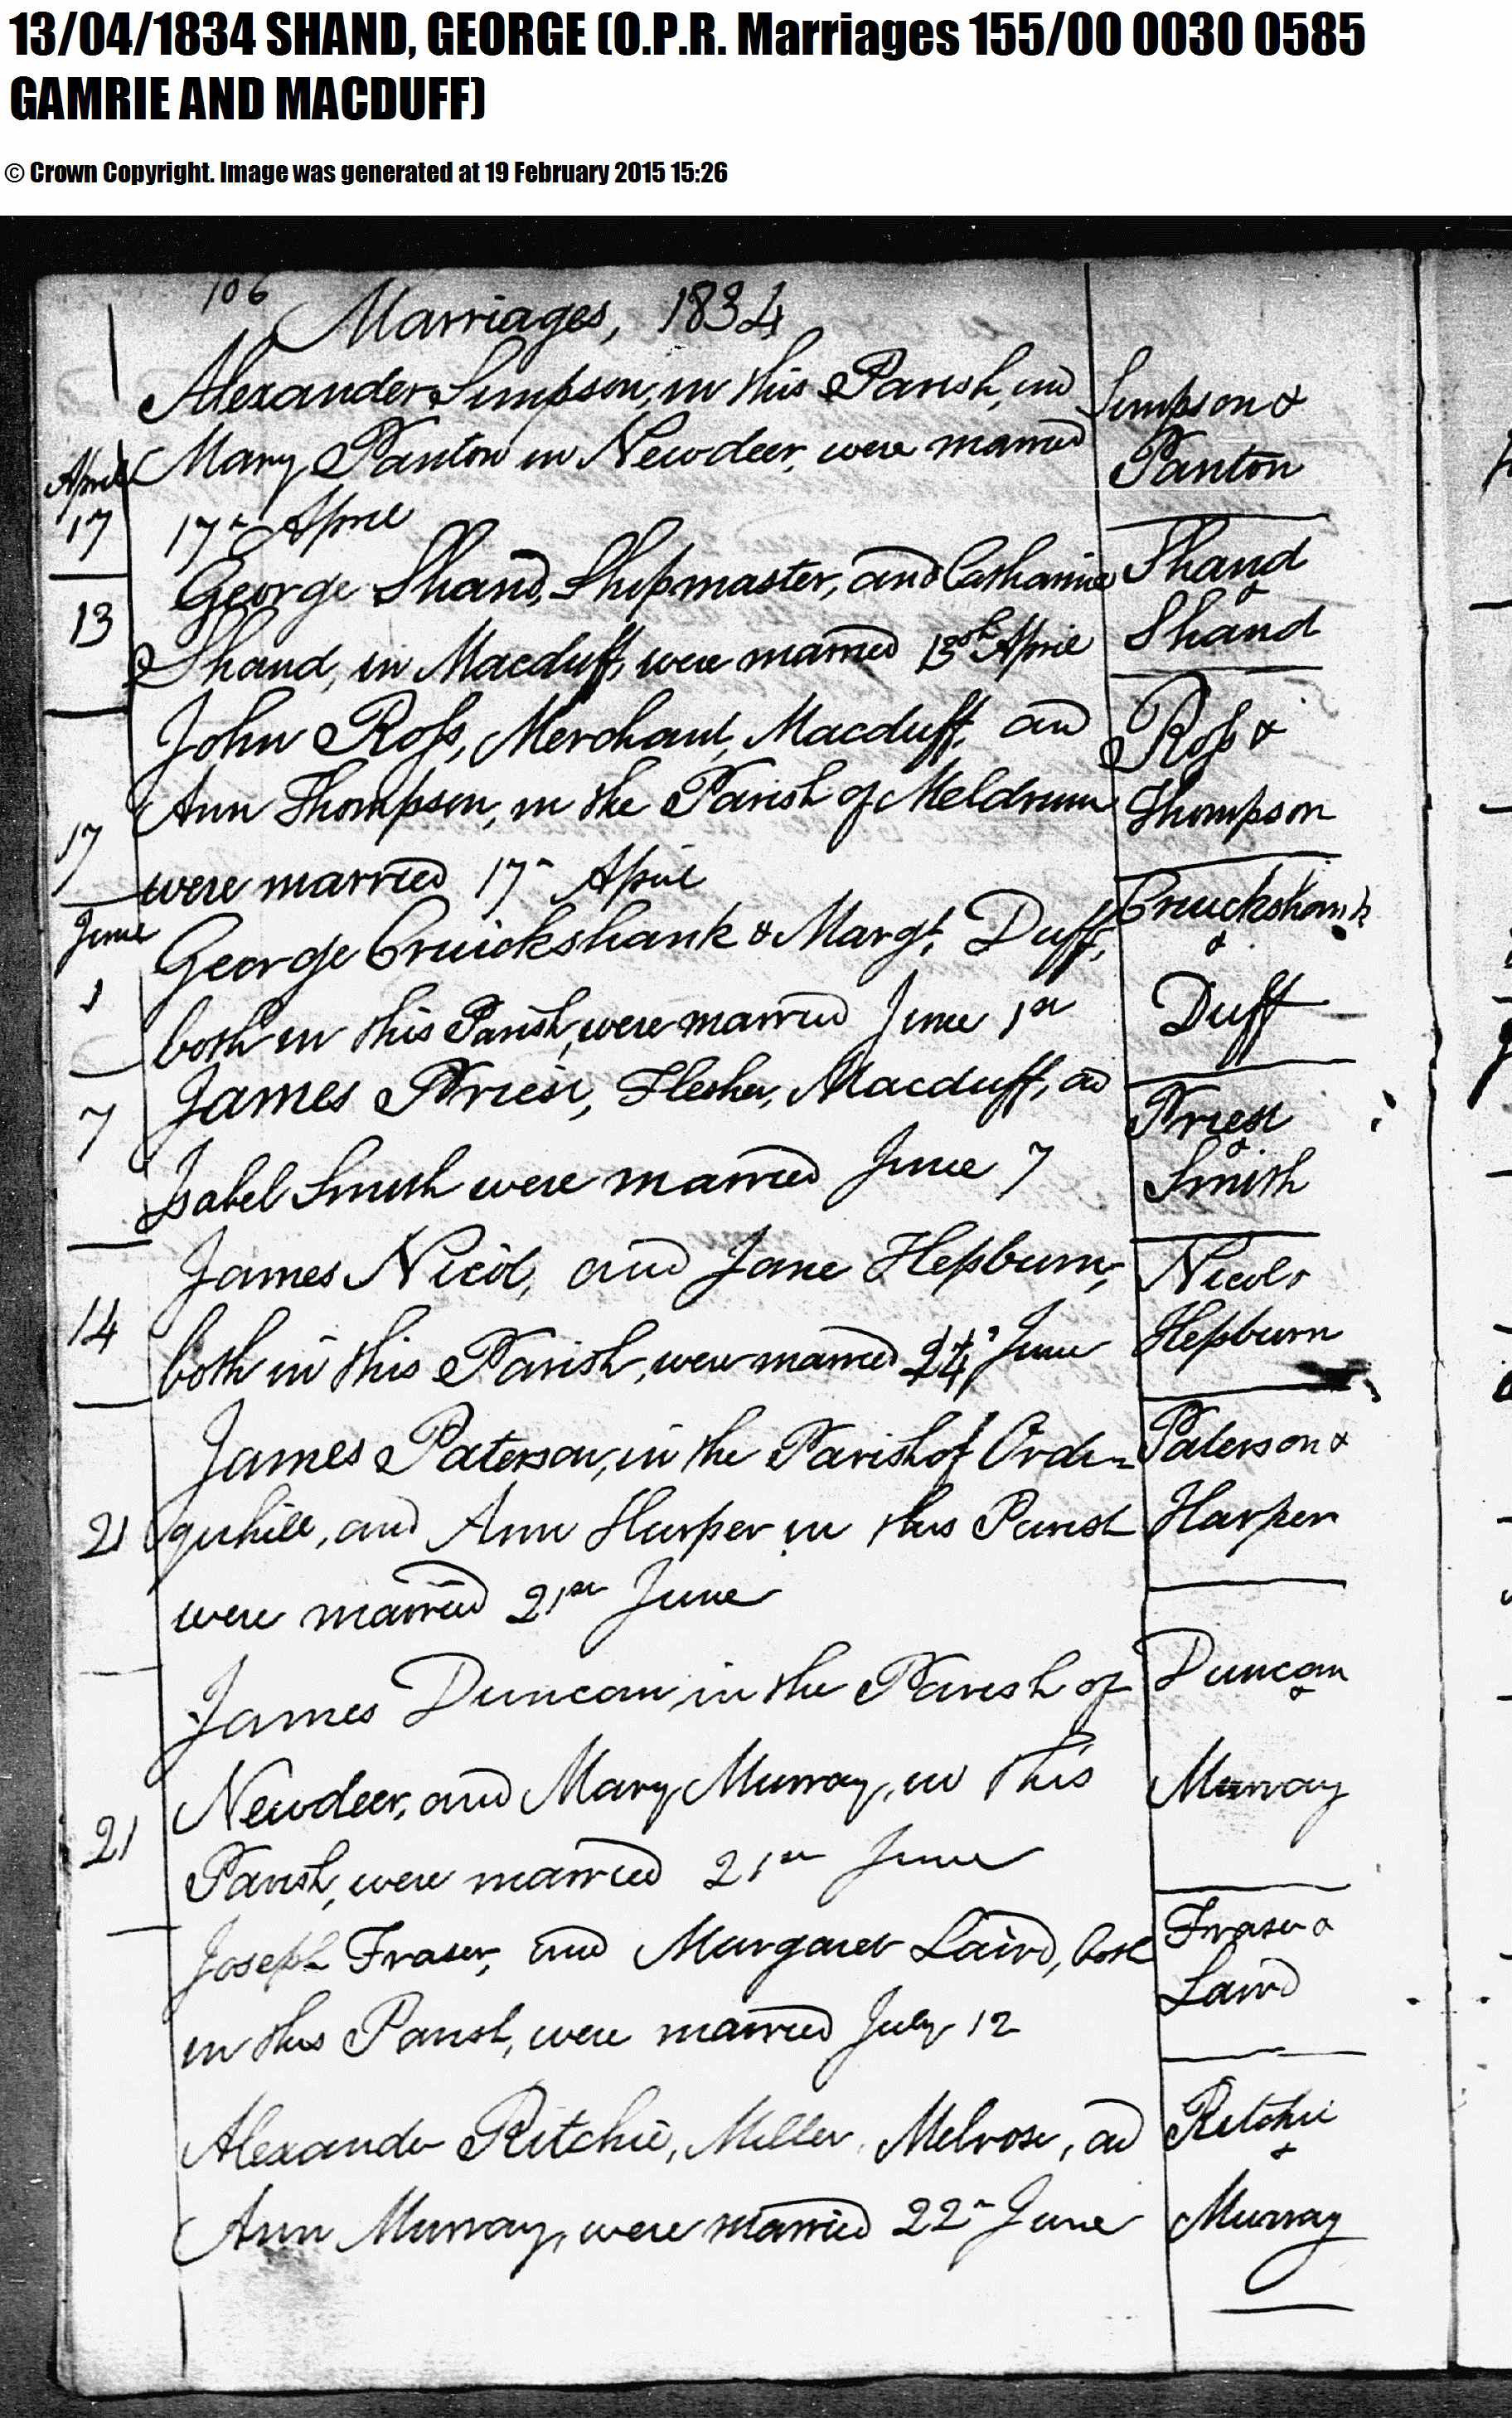 13/04/1834 SHAND, GEORGE (O.P.R. Marriages 155/00 0030 0585
GAMRIE AND MACDUFF)
© Crown Copyright. Image was generated at 19 February 2015 15:26
106
Marriages, 1834
Alexander Simpson, in this Parish, and
Simpson &
April
Mary Panton in Newdeer, were married
Panton
17
17th April
George Shand, Shipmaster, and Catharine
Shand
&
13
Shand, in Macduff, were married 13th April
Shand
John Ross, Merchant, Macduff, and
Ross &
Ann Thompson, in the Parish of Meldrum
Thompson
17
were married 17th April
June
George Cruickshank & Margt. Duff,
Cruickshank
&
1
both in this Parish, were married June 1st
Duff
James Priest, Flesher, Macduff, and
Priest
&
7
Isabel Smith were married June 7
Smith
James Nicol, and Jane Hepburn,
Nicol &
14
both in this Parish, were married June
Hepburn
James Paterson, in the Parish of Orde-
Paterson &
21
quhill, and Ann Harper in this Parish
Harper
were married 21st June
James Duncan, in the Parish of
Duncan
&
Newdeer, and Mary Murray, in this
Murray
21
Parish, were married 21st June
Joseph Fraser, and Margaret Laird, both
Fraser &
in this Parish, were married July 12
Laird
Alexander Ritchie, Miller, Melrose, and
Ritchie
&
Ann Murray, were married 22nd June
Murray